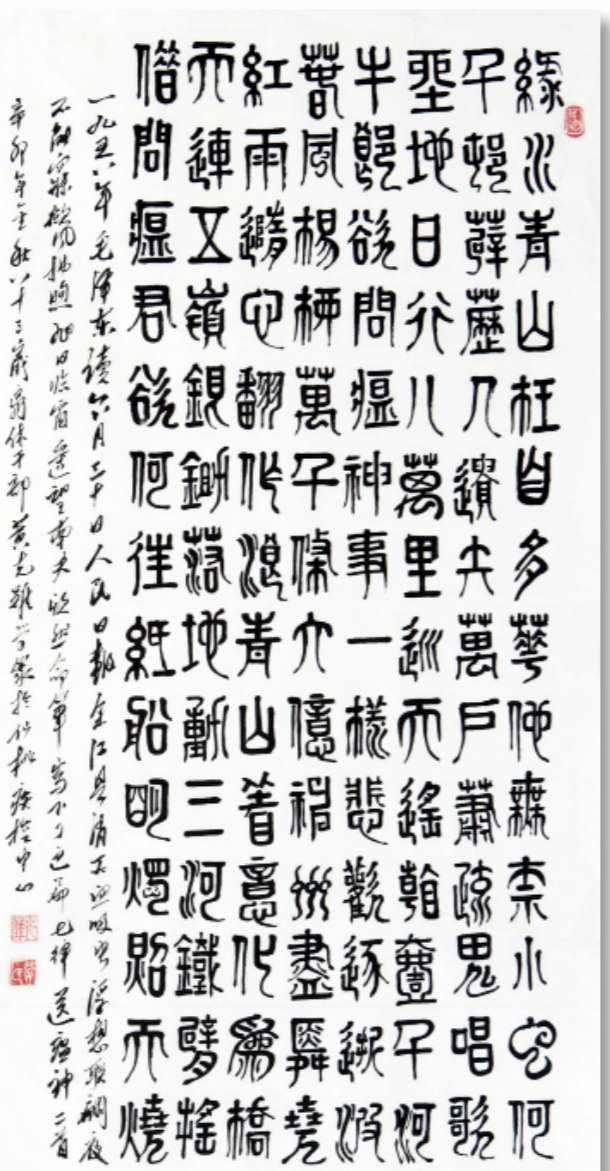 綠水青山枉自多華佗無奈小虫何
千邨薜荔人遺矢萬戶蕭疏鬼唱歌
坐地日行八萬里巡天遙看壹千河
牛郎欲問瘟神事一樣悲歡逐逝波
春風楊柳萬千條六億神州盡舜堯
紅雨隨心翻作浪青山着意化為橋
天連五嶺銀鋤落地動三河鐵臂搖
借問瘟君欲何往紙船明燭照天燒
一九五八年毛澤东讀六月三十日人民日報余江县消灭血吸虫浮想联翩夜
不能寐微风拂煦旭日临窗遥望南天欣然命筆寫下了这篇七律送瘟神二首
辛卯年金秋八十三歲离休干部黃克雄学篆於仙桃